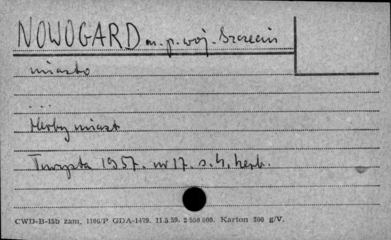 NOWOGARD m. p. woj. Szczecin
miasto
...
Herby miast
Turysta 1957. nr 17. s. 4. herb.
CWD-B-15b zam. 1106/P GDA-1479. 11.5.59. 2 550 000. Karton 200 g/V.